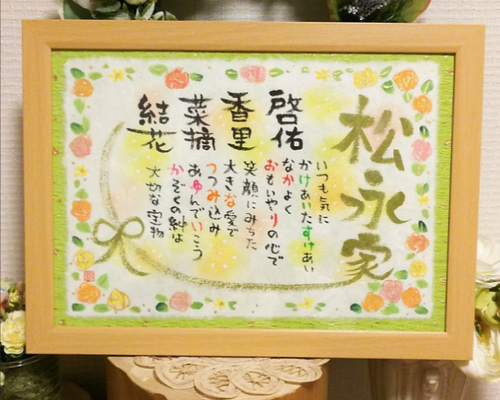 松永家
啓佑
香里
菜摘
結花
いつも気に
かけあいたすけあい
なかよく
おもいやりの心で
笑顔にみちた
大きな愛で
つつみ込み
あゆんでいこう
かぞくの絆は
大切な宝物